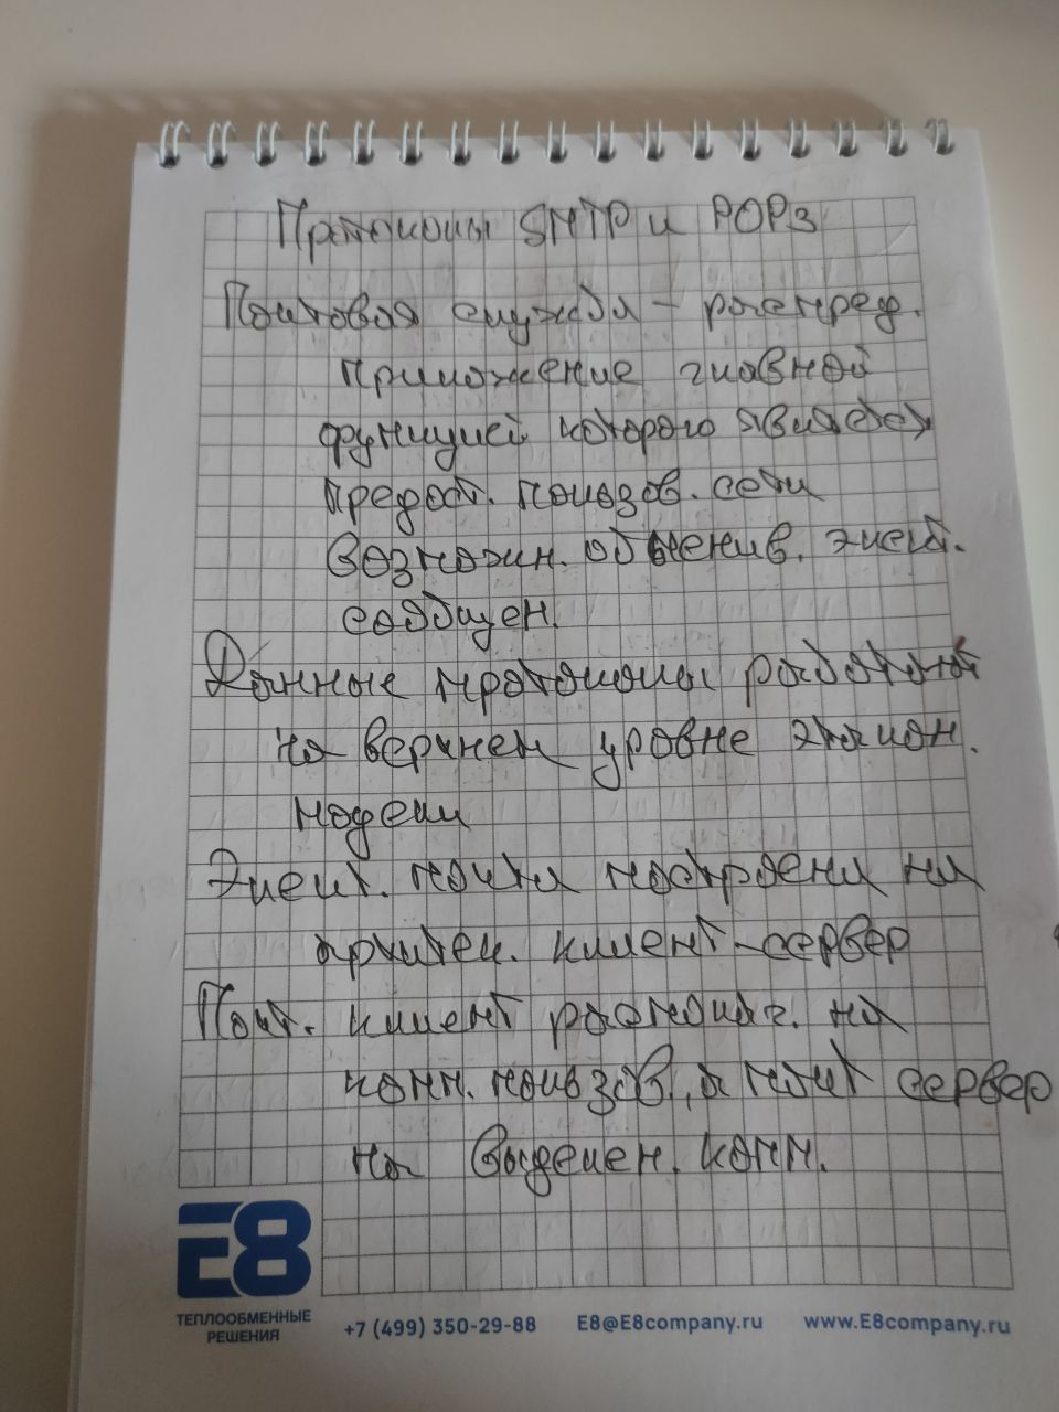 Протоколы SMTP и POP3
Почтовая служба – распред.
приложение главной
функцией которого является
предост. пользов. сети
возможн. обменив. элект.
сообщен.
Данные протоколы работают
на верхнем уровне эталон.
модели
Элект. почта построена на
архитек. клиент-сервер
Почт. клиент располаг. на
комп. пользов., а почт сервер
на выделен. комп.
E8
ТЕПЛООБМЕННЫЕ
РЕШЕНИЯ
+7 (499) 350-29-88 E8@E8company.ru www.E8company.ru